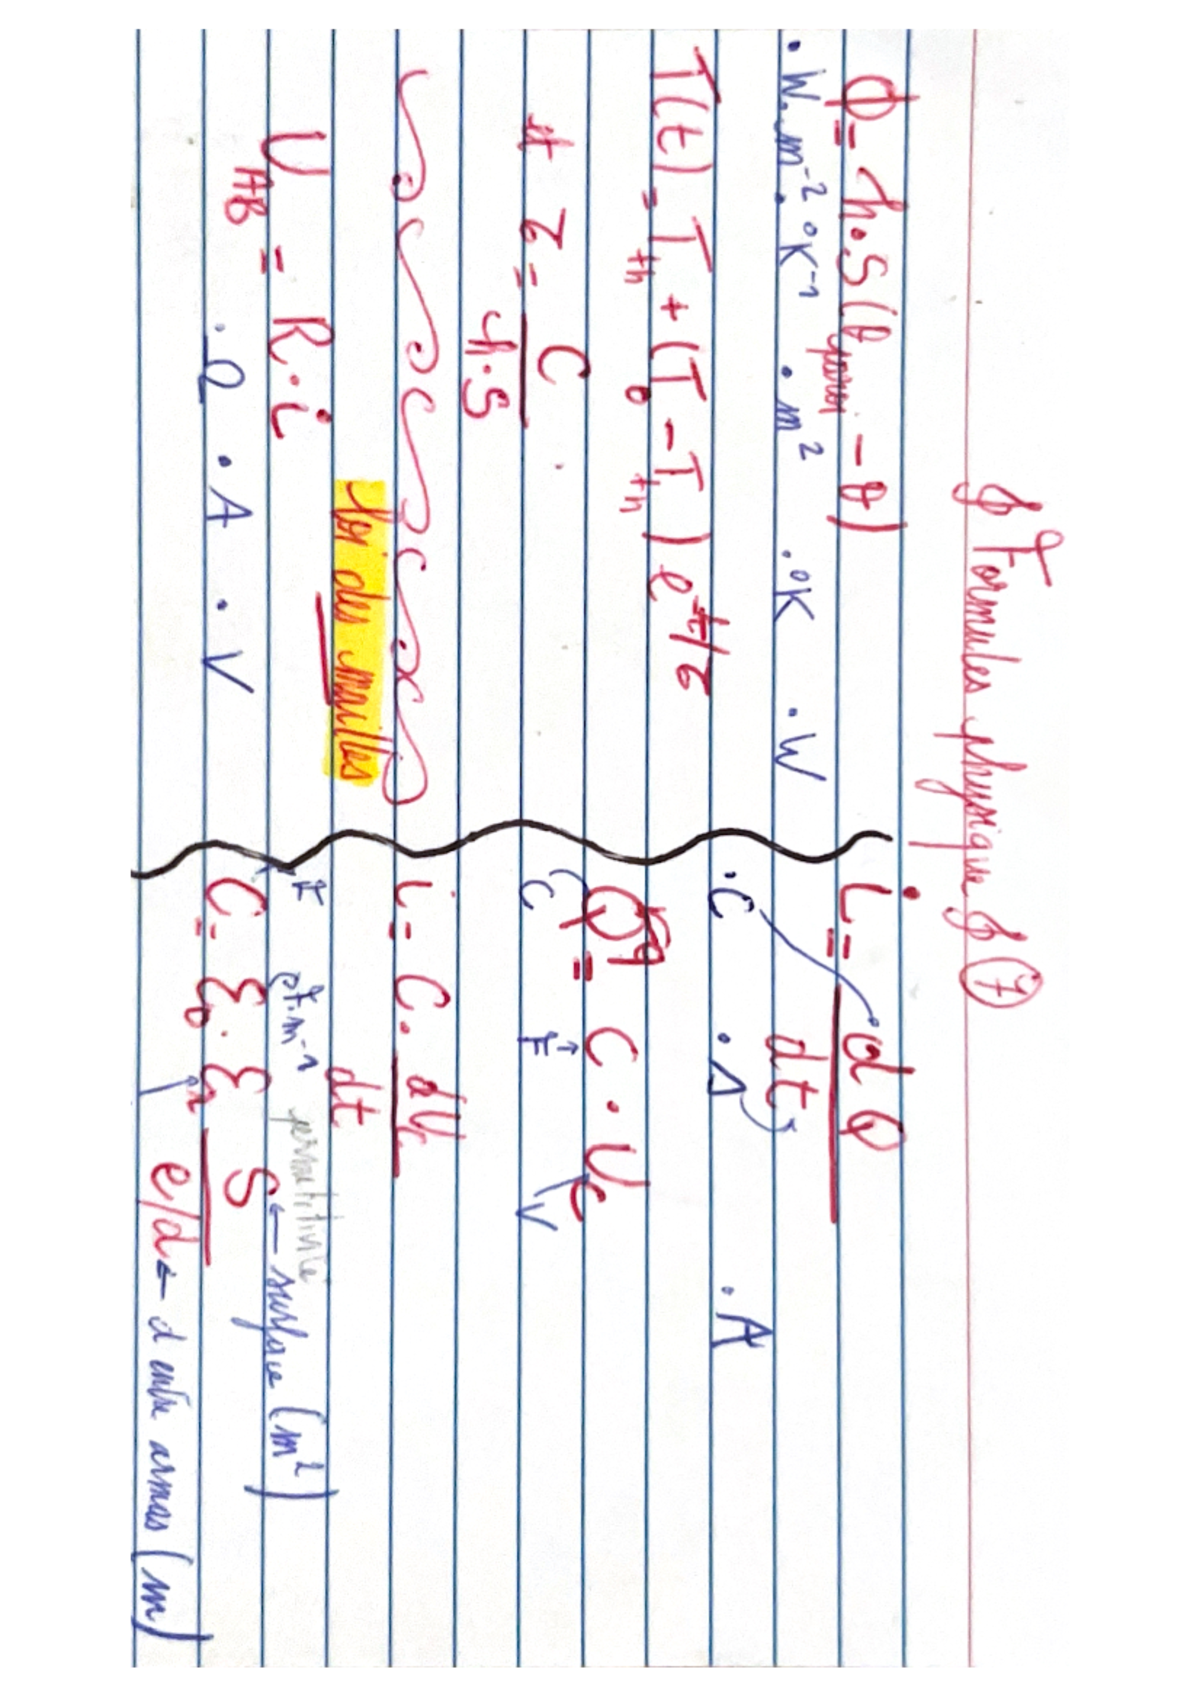 Formules physique ⑦
Φ = h.S (θparoi - θ)
. W.m⁻².°K⁻¹ . m² .°K . W
T(t) = Tth + (T0 - Tth) e^-t/τ
# τ = C
h.S
Loi des mailles
UAB = R.i
. Ω . A . V
i = dQ
dt
. C . Δ . A
Q = C . Uc
C F V
i = C. dUc
dt
F pF.m⁻¹ permittivité
C = ε0 . εr S ← surface (m²)
e/d ← d entre armas (m)